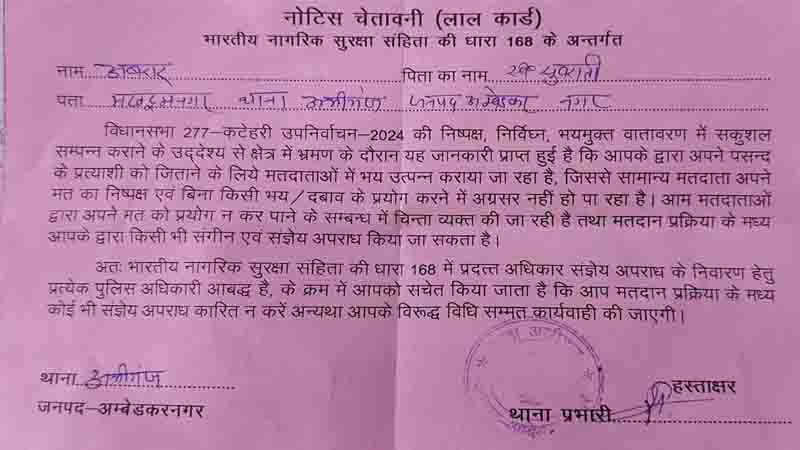 नोटिस चेतावनी (लाल कार्ड)
भारतीय नागरिक सुरक्षा संहिता की धारा 168 के अन्तर्गत
नाम अबरार पिता का नाम
पता थाना अलीगंज जनपद अम्बेडकर नगर
विधानसभा 277-कटेहरी उपनिर्वाचन-2024 की निष्पक्ष, निर्विघ्न, भयमुक्त वातावरण में सकुशल
सम्पन्न कराने के उद्देश्य से क्षेत्र में भ्रमण के दौरान यह जानकारी प्राप्त हुई है कि आपके द्वारा अपने पसन्द
के प्रत्याशी को जिताने के लिये मतदाताओं में भय उत्पन्न कराया जा रहा है, जिससे सामान्य मतदाता अपने
मत का निष्पक्ष एवं बिना किसी भय/दबाव के प्रयोग करने में अग्रसर नहीं हो पा रहा है। आम मतदाताओं
द्वारा अपने मत को प्रयोग न कर पाने के सम्बन्ध में चिन्ता व्यक्त की जा रही है तथा मतदान प्रक्रिया के मध्य
आपके द्वारा किसी भी संगीन एवं संज्ञेय अपराध किया जा सकता है।
अतः भारतीय नागरिक सुरक्षा संहिता की धारा 168 में प्रदत्त अधिकार संज्ञेय अपराध के निवारण हेतु
प्रत्येक पुलिस अधिकारी आबद्ध है, के क्रम में आपको सचेत किया जाता है कि आप मतदान प्रक्रिया के मध्य
कोई भी संज्ञेय अपराध कारित न करें अन्यथा आपके विरूद्ध विधि सम्मत कार्यवाही की जाएगी।
थाना अलीगंज
जनपद-अम्बेडकरनगर
हस्ताक्षर
थाना प्रभारी